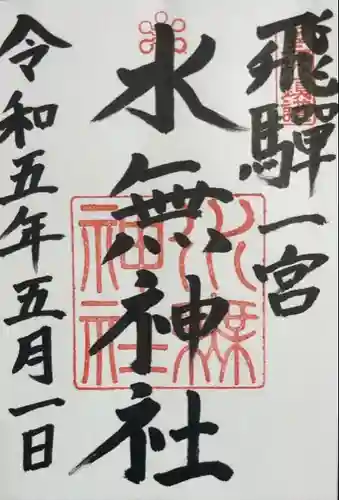 飛騨一宮
水無神社
令和五年五月一日